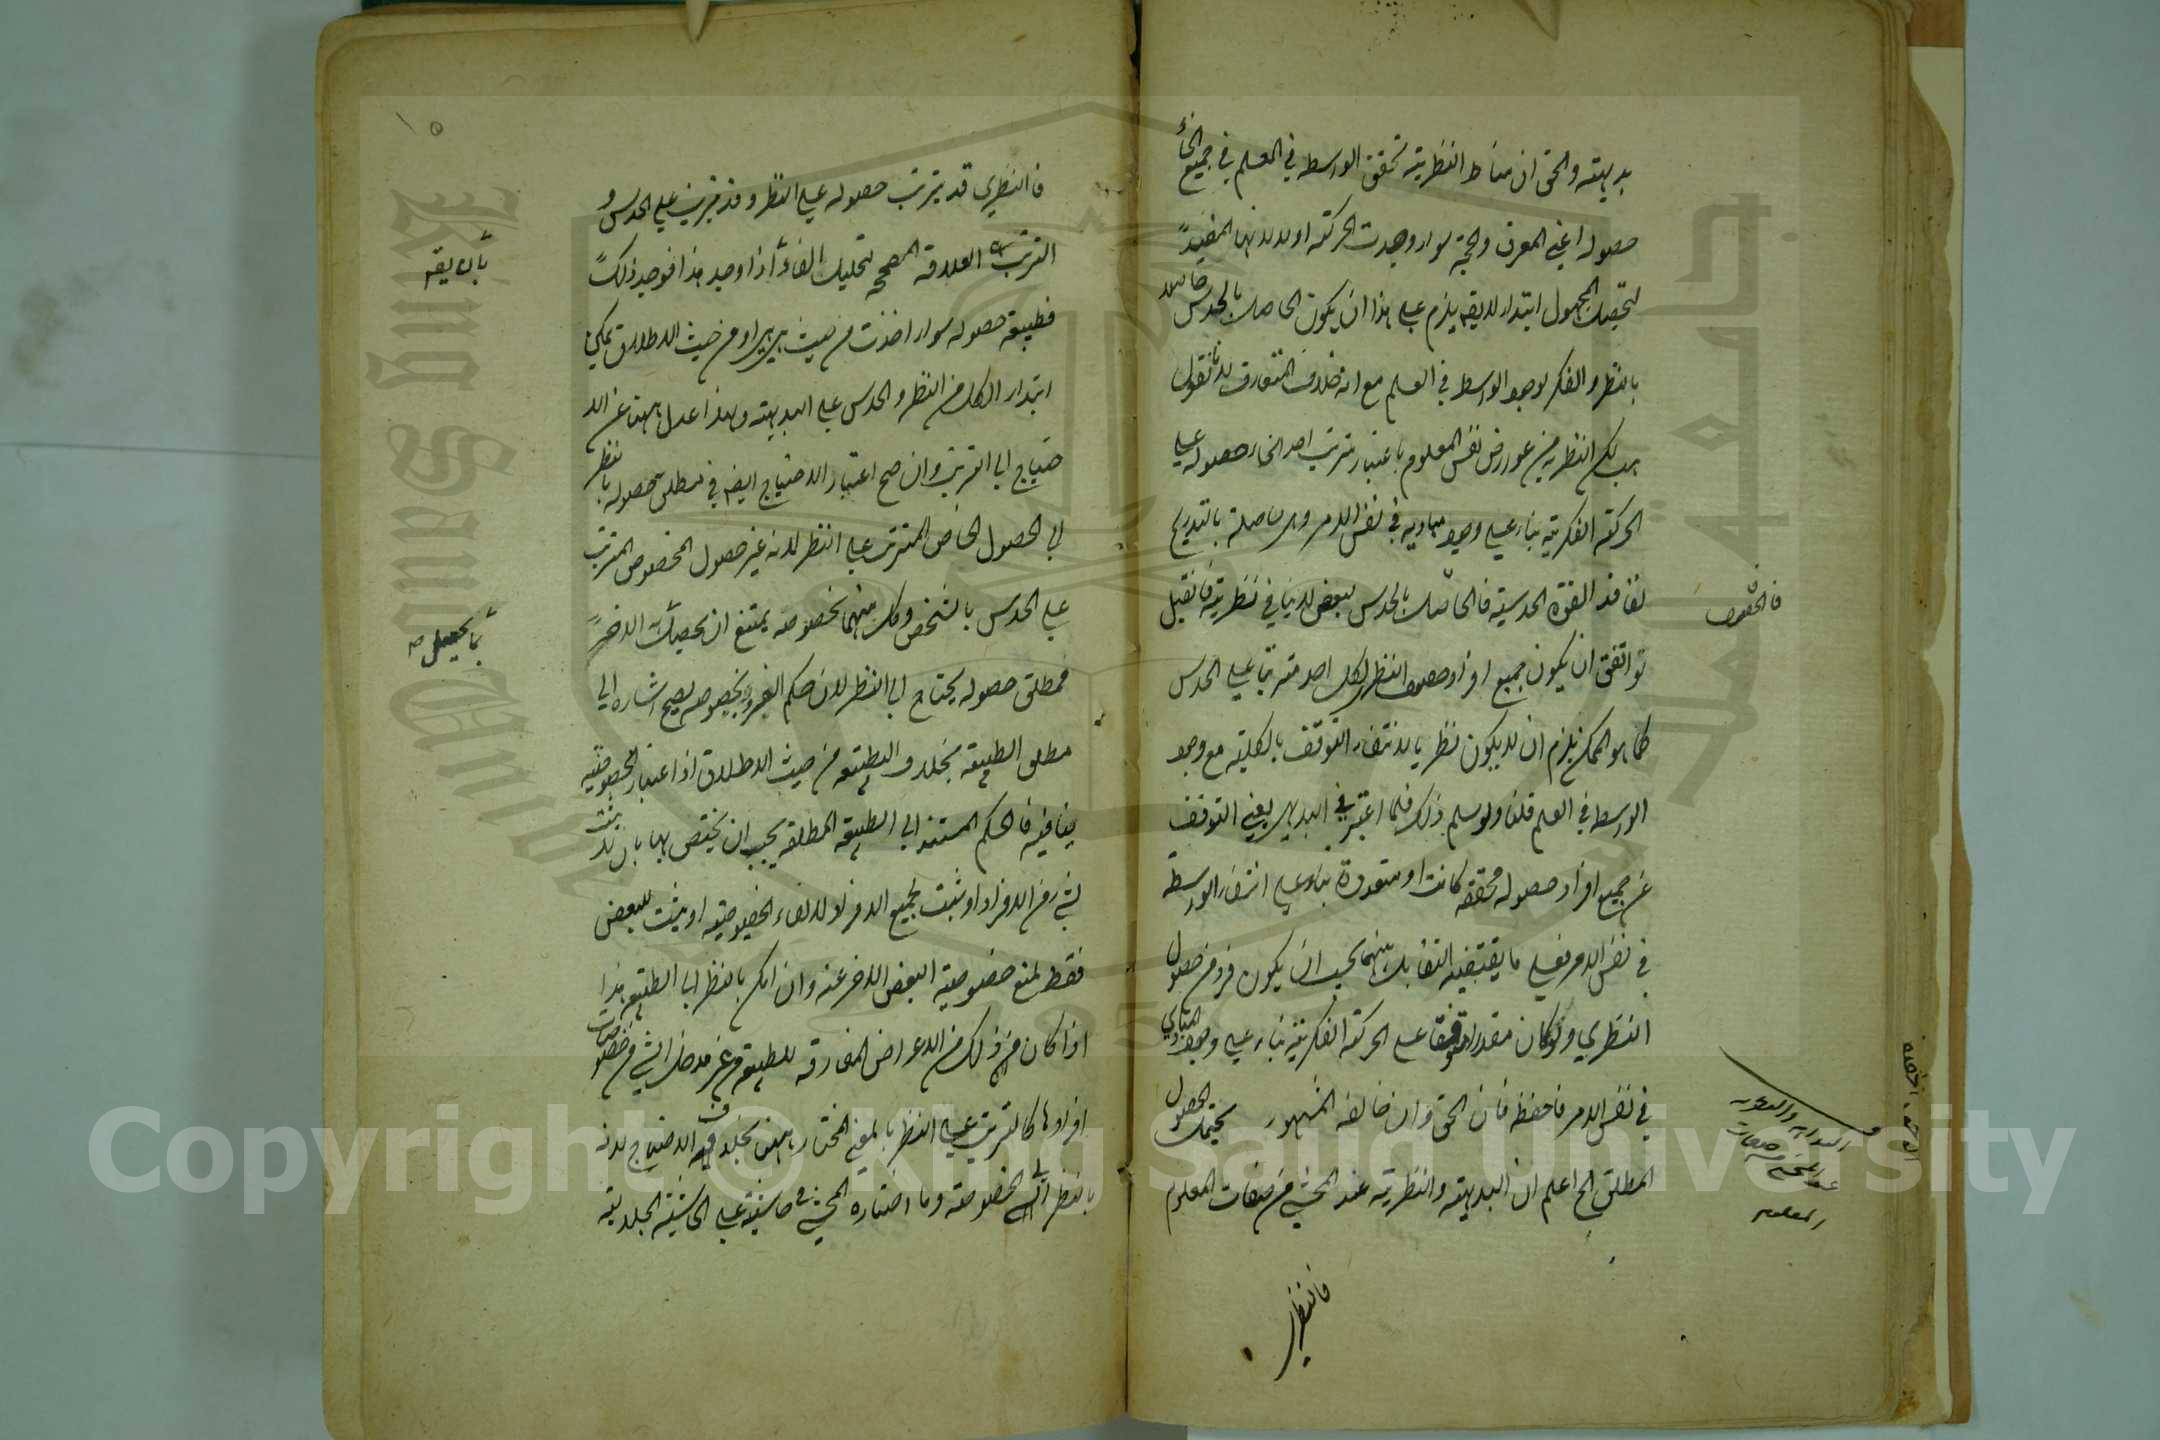 بديهية والحق ان مناط النظرية تحقق الواسطه في العلم في جميع انحاء
حصوله اعني المعرف والحجة سواء وجدت الحركة اولا لانها المفيد
لتحصيل المجهول ابتداء لا يقم يلزم على هذا ان يكون الحاصل بالحدس حاصلا
بالنظر والفكر لوجود الواسط في العلم مع انه خلاف المتعارف لانا نقول
هناك النظرية من عوارض نفس المعلوم باعتبار ترتب احد انحاء حصوله على
الحركة الفكرية بناء على وجود مباديه في نفس الامر وهي حاصلة بالتدريج
لفاقد القوة الحدسية فالحاصل بالحدس لبعض لا ينافي نظريته فان قيل
لو اتفق ان يكون جميع افراد حصول النظر لكل احد مترتبا على الحدس
كما هو الممكن يلزم ان لا يكون نظريا لانتفاء التوقف بالكلية مع وجود
الواسط في العلم قلنا ولو سلم ذلك فلما اعتبر في البديهي يعني التوقف
عن جميع افراد حصوله محققه كانت او مقدرة بناء على انتفاء الواسطة
في نفس الامر فعلى ما يقتضيه التقابل بينهما يجب ان يكون فرد من حصول
النظري ولو كان مقدرا متوقفا على الحركة الفكرية بناء على وجود المبادي
في نفس الامر فاحفظ فان الحق وان خالفه المشهور يحتمل الحصول
المطلق الخ اعلم ان البديهية والنظرية عند المحشي من صفات المعلوم
فالنظري
فالحصول
البداهه والنظريه
عند المحشي من صفات
المعلوم
١٥
فالنظري قد يترتب حصوله على النظر وقد يترتب على الحدس و
الترتب العلاقة المصححه لتحليل الفاء اذا وجد هذا فوجد ذلك
فطبيعة حصوله سواء اخذت من حيث هي هي او من حيث الاطلاق يمكن
ابتداء الكل من النظر والحدس على البديهية ولهذا عدل ههنا عن الا
حتياج الى الترتب وان صح اعتبار الاحتياج ايضه في مطلق حصوله بالنظر
الى الحصول الخاص المترتب على النظر لانه غير حصول المخصوص المترتب
على الحدس بالشخص وكل منهما بخصوصه يمتنع ان يحصل بالاخر
فمطلق حصوله يحتاج الى النظر لان حكم الفرد بخصوصه يصح اشاره الى
مطلق الطبيعة بخلاف الطبيعة من حيث الاطلاق اذا اعتبار الخصوصية
ينافيه فالحكم المستند الى الطبيعة المطلقة يجب ان يختص بها بان لا يثبت
لشيء من الافراد او يثبت لجميع الافراد لالغاء الخصوصية او يثبت للبعض
فقط لمنع خصوصية البعض الاخر عنه وان امكن بالنظر الى الطبيعة هذا
اذا كان من ذلك من الاعراض المفارقه للطبيعة من غير مدخل لشيء من خصوصيات
افرادها كالترتب على النظر بالمعنى المختار ههنا بخلاف الاحتياج لانه
بالنظر الى الخصوصة وما اختاره المحشي في حاشيته على الحاشية الجلالية